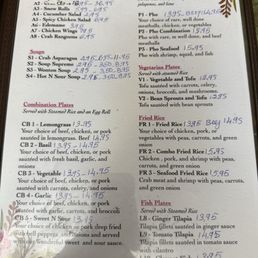 A3 - Snow Rolls
A4 - Cucumber Salad
A5 - Spicy Chicken Salad
A6 - Edamame
A7 -
A8 - Crab Rangoons
Soups
S1 - Crab Asparagus
S2 - Soup Supreme
S3 - Wonton Soup
S4 - Hot N Sour Soup
Combination Plates
Served with Steamed Rice and an Egg Roll
CB 1 - Lemongrass 13.95
Your choice of beef, chicken, or pork
sautéed in Lemongrass. Beef 14.95
CB 2 - Basil 13.95-14.95
Your choice of beef, chicken, or pork
sautéed with fresh basil, garlic, and
onions
CB 3 - Vegetable 13.95-14.95
Your choice of beef, chicken, or pork
sautéed with carrots, celery, onions,
and broccoli
CB 4 - Garlic 13.95-14.95
Your choice of beef, chicken, or pork
sautéed with garlic, carrots, and broccoli
CB 5 - Sweet N Sour 13.95
Your choice of chicken or pork deep fried
with bell peppers and onions and served
with our Wonderful sweet and sour sauce.
jalapeno, and lime
P1 - Pho
Your choice of rare, well done
meatballs, chicken, or vegetables
P2 - Pho Combination 15.95
Pho with rare, well done, and beef
meatballs
P3 - Pho Seafood 15.95
Pho with shrimp, squid, and fish
Vegetarian Plates
Served with steamed Rice
V1 - Vegetable and Tofu 12.95
Tofu sautéed with carrots, celery, and
onions
V2 - Bean Sprouts and Tofu 12.95
Tofu sautéed with bean sprouts
Fried Rice
FR 1 - Fried Rice
Your choice of beef, chicken, pork, or
vegetables with peas, carrots, and green
onion
FR 2 - Combo Fried Rice 15.95
Chicken, pork, and shrimp with peas,
carrots, and green onion
FR 3 - Seafood Fried Rice 15.95
Crab meat and shrimp with peas, carrots,
and green onion
Fish Plates
Served with Steamed Rice
L8 - Ginger Tilapia 13.95
Tilapia fillets sautéed in ginger sauce
L9 - Tomato Tilapia 14.95
Tilapia fillets sautéed in tomato sauce
with cilantro